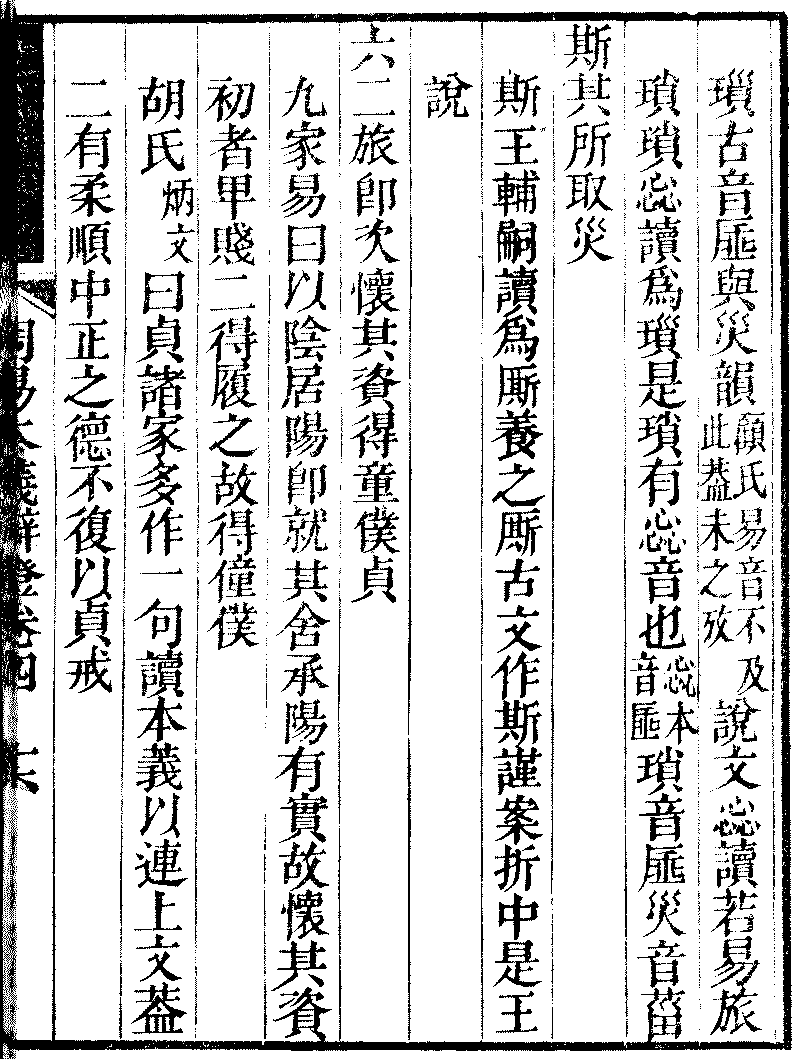 瑣古音𤴙與災韻顧氏易音不及此葢未之攷說文惢讀若易旅
瑣瑣惢讀爲瑣是瑣有惢音也惢本音𤴙瑣音𤴙災音菑
斯其所取災
斯王輔嗣讀爲厮養之厮古文作斯謹案折中是王
說
六二旅卽次懷其資得童僕貞
九家易曰以陰居陽卽就其舍承陽有實故懷其資
初者甲賤二得履之故得僮僕
胡氏炳文曰貞諸家多作一句讀本義以連上文葢
二有柔順中正之德不復以貞戒
周易本義辨證卷四